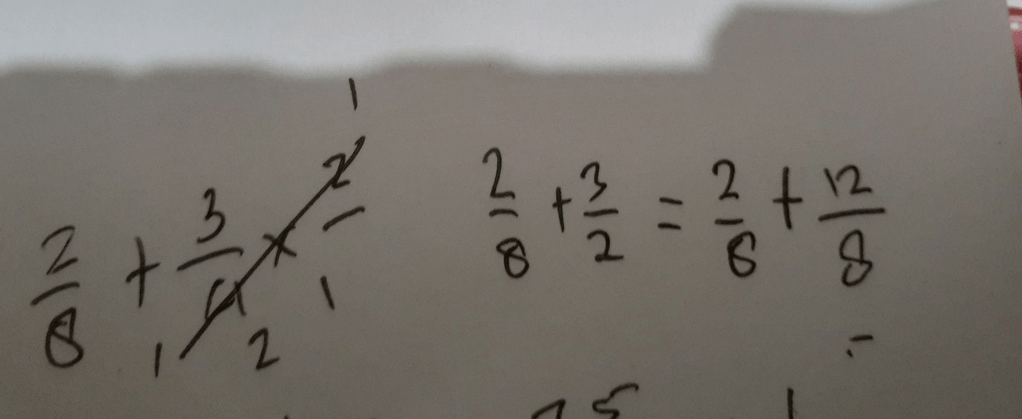 2/8 + 3/4 × 2/1 1 1 2
2/8 + 3/2 = 2/8 + 12/8
=